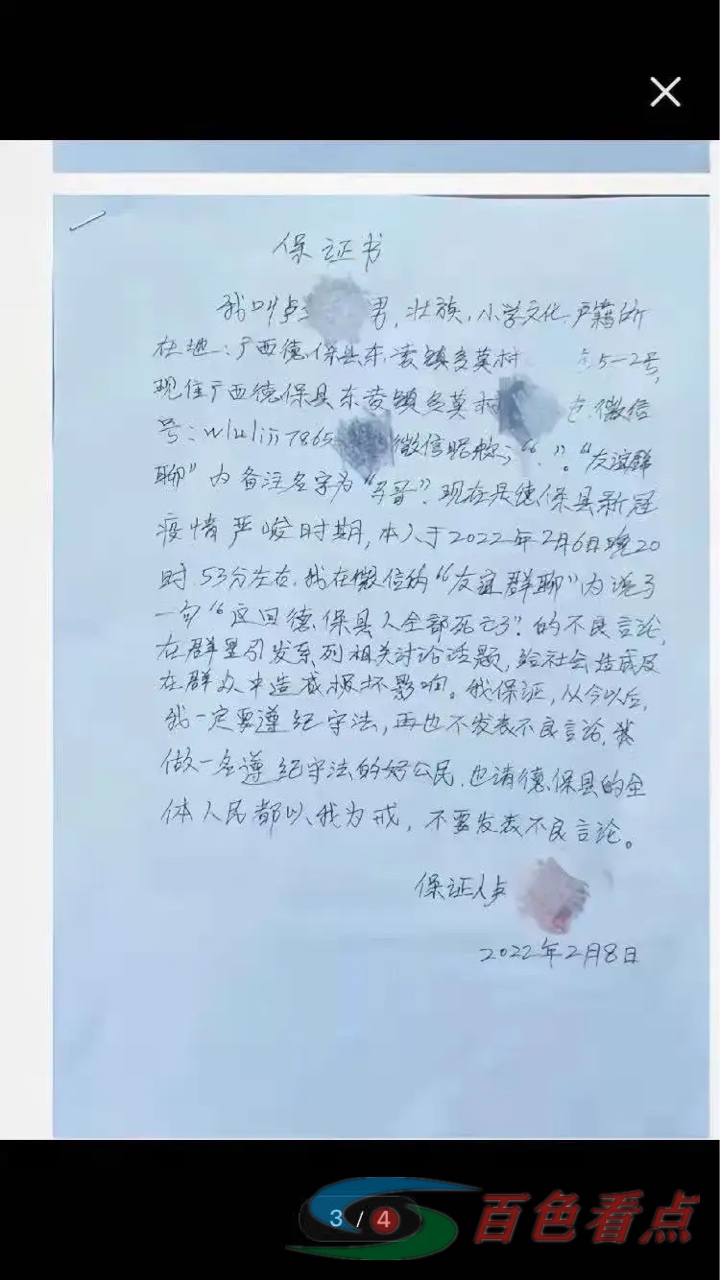 保证书
我叫卢 男，壮族，小学文化，户籍所
在地：广西德保县东凌镇多莫村 5-2号，
现住广西德保县东凌镇多莫村 屯，微信
号：wluliji7865 微信昵称："."。"友谊群
聊"内备注名字为" 哥"。现在是德保县新冠
疫情严峻时期，本人于2022年2月6日晚20
时53分左右，我在微信的"友谊群聊"内说了
一句"这回德保县人全部死亡了"的不良言论，
在群里引发系列相关讨论话题，给社会造成及
在群众中造成极坏影响。我保证，从今以后，
我一定要遵纪守法，再也不发表不良言论，我
做一名遵纪守法的好公民，也请德保县的全
体人民都以我为戒，不要发表不良言论。
保证人卢
2022年2月8日
3 / 4
百色看点